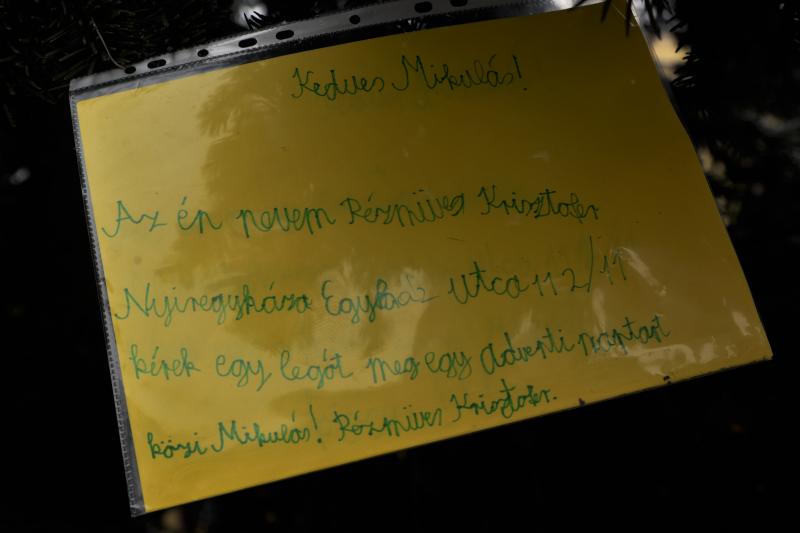 Kedves Mikulás!
Az én nevem Rézműves Krisztofer
Nyiregyháza Egyház utca 112/11
kérek egy legót meg egy adventi naptárt
közi Mikulás! Rézműves Krisztofer.